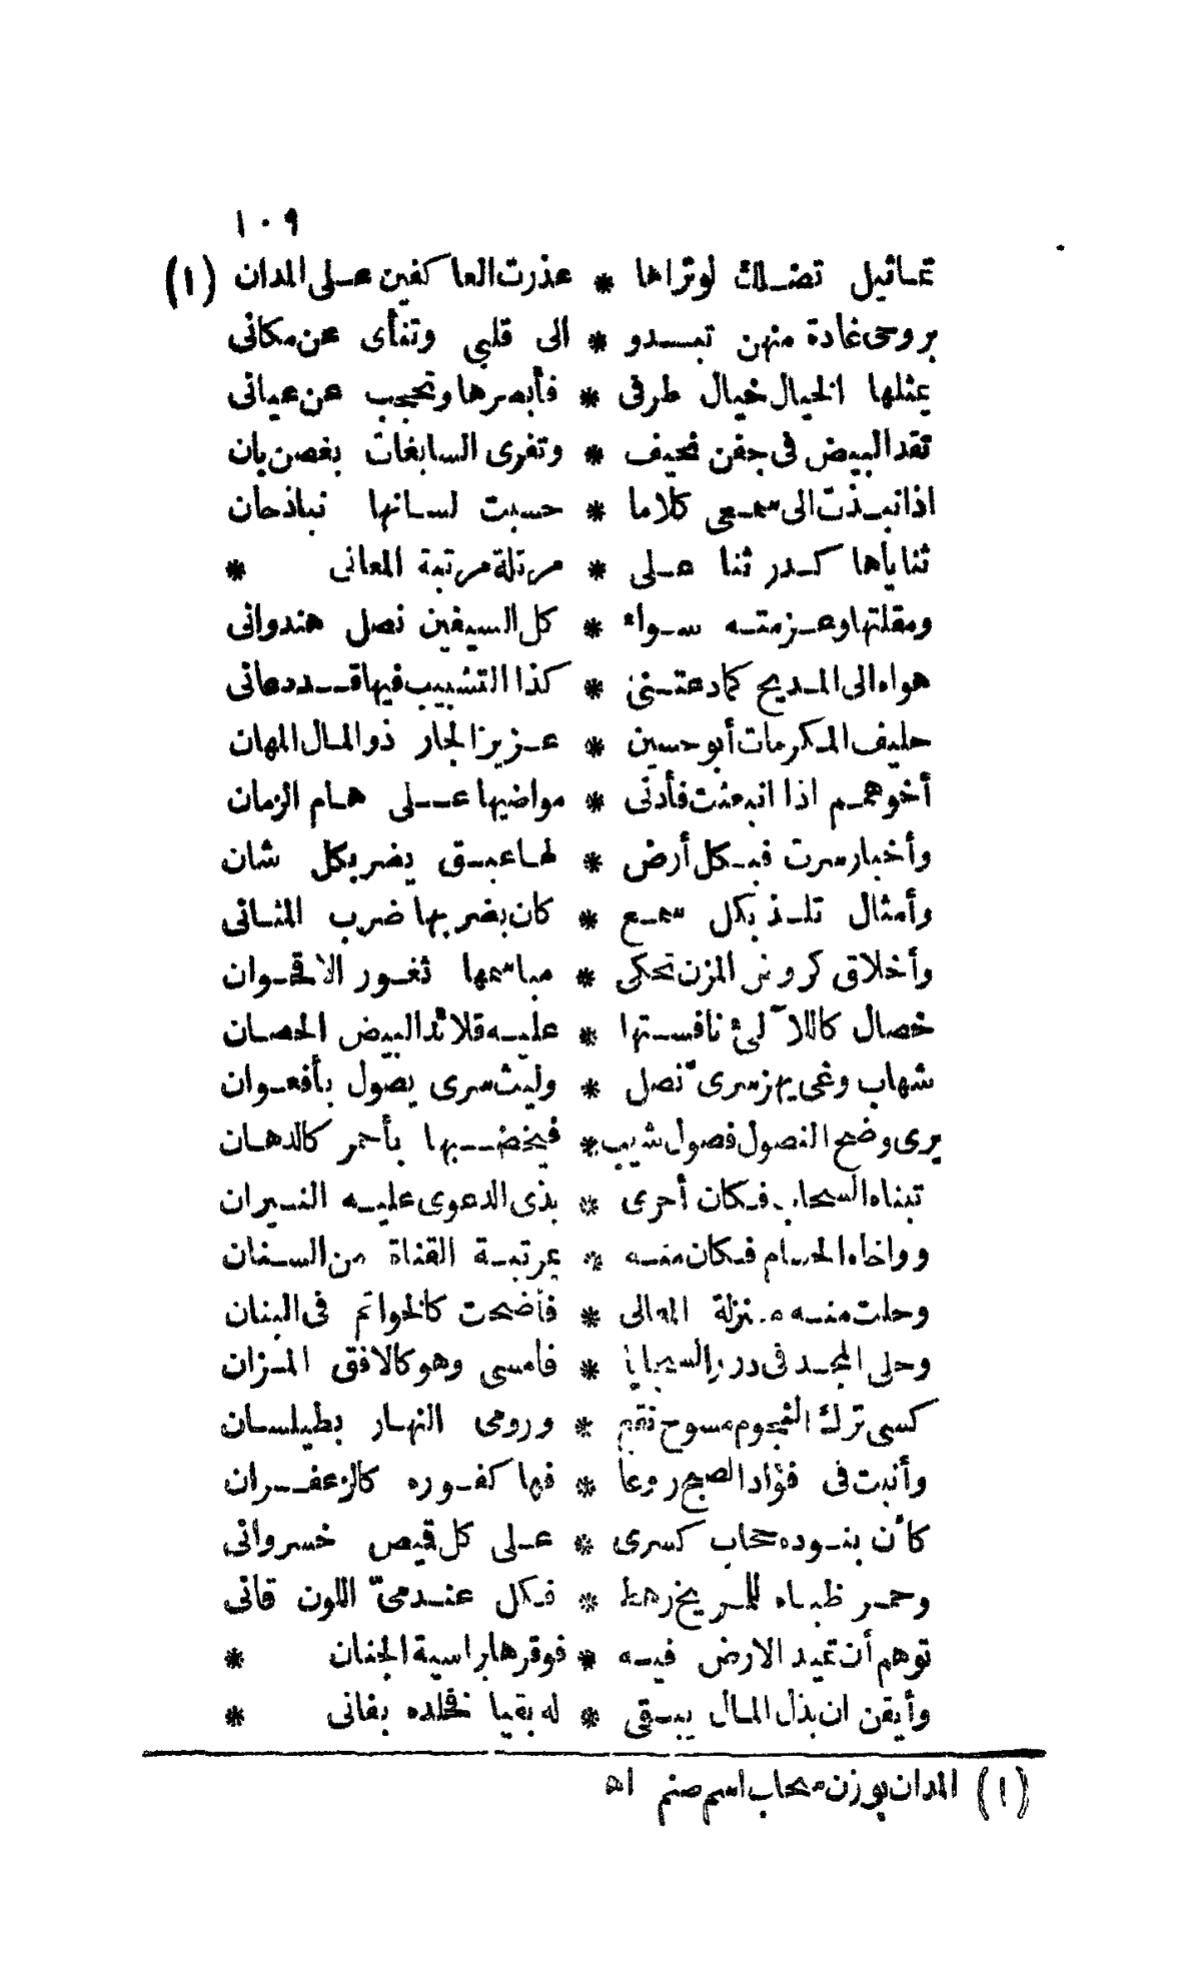 ١٠٩
تماثيل تضلك لو تراها * عذرت العاكفين على المدان (١)
بروحى غادة منهن تبدو * الى قلبي وتنأى عن مكانى
يمثلها الخيال خيال طرفى * فأبصرها وتحجب عن عيانى
تقد البيض فى جفن نحيف * وتفرى السابغات بغصن بان
اذا نبذت الى سمعى كلاما * حسبت لسانها نباذحان
ثناياها كدر ثنا على * مرتلة مرتبة المعانى *
ومقلتها وعزمته سواء * كل السيفين نصل هندوانى
هواه الى المديح كما دعتنى * كذا التشبيب فيها قد دعانى
حليف المكرمات أبو حسين * عزيز الجار ذو المال المهان
أخوهمم اذا انبعثت فأدنى * مواضيها على هام الزمان
وأخبار سرت فبكل أرض * لها عبق يضر بكل شان
وأمثال تلذ بكل سمع * كان بضربها ضرب المثانى
وأخلاق كروض المزن تحكى * مباسمها ثغور الاقحوان
خصال كاللآلئ نافستها * عليه قلائد البيض الحصان
شهاب وغى يهز سرىّ نصل * وليث سرى يصول بأفعوان
يرى وضح النصول فصول شيب * فيخضبها بأحمر كالدهان
تبناه السحاب فكان أحرى * بذى الدعوى عليه النيران
وواخاه الحسام فكان منه * بمرتبة القناة من السنان
وحلت منه منزلة المعالى * فأضحت كالخواتم فى البنان
وحلى المجد فى درر السجايا * فامسى وهو كالافق المزان
كسى ترك النجوم مسوح نقع * ورومى النهار بطيلسان
وأنبت فى فؤاد الصبح روعا * فها كفوره كالزعفران
كأن بنوده حجاب كسرى * على كل قميص خسروانى
وحمر ظباه للمريخ رهط * فكل عندمىّ اللون قانى
توهم أن تميد الارض فيه * فوقرها براسية الجنان *
وأيقن ان بذل المال يبقى * له بقيا فخلده بفانى *
(١) المدان بوزن سحاب اسم صنم اه